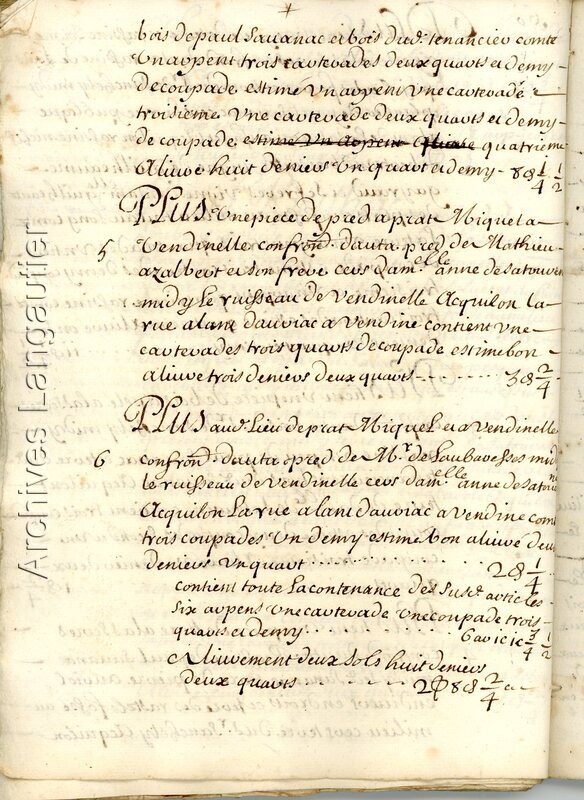 bois de paul Savanac et bois dud. tenancier conte
Un arpent trois carterades deux quarts et demy
de coupade estime Un arpent Une carterade
troisieme Une carterade deux quarts et demy
de coupade estime Un arpent quatrieme
Aliure huit deniers Un quart et demy - 8 d 1/4 1/2
PLUS Une piece de pred a prat Miquel a
5 Vendinelle confron. d'auta pred de Mathieu
azalbert et son frere cers dam.elle anne de Latour
midy Le ruisseau de Vendinelle Acquilon la
rue alant dauriac a Vendine contient Une
carterades trois quarts de coupade estime bon
aliure trois deniers deux quarts 3 d 2/4
PLUS aud. Lieu de prat Miquel et a Vendinelle
6 confron. d'auta pred de Mr. de Laubaresses midy
le ruisseau de Vendinelle cers dam.elle anne de Latour
Acquilon La rue alant dauriac a Vendine cont
trois coupades Un demy estime bon aliure deux
deniers Un quart 2 d 1/4
contient toute La contenance des susd. articles
six arpens Une carterade Une coupade trois
quarts et demy 6 a 1 c 1 c 3/4 1/2
Alivrement deux sols huit deniers
deux quarts 2 s 8 d 2/4
Archives Langautier